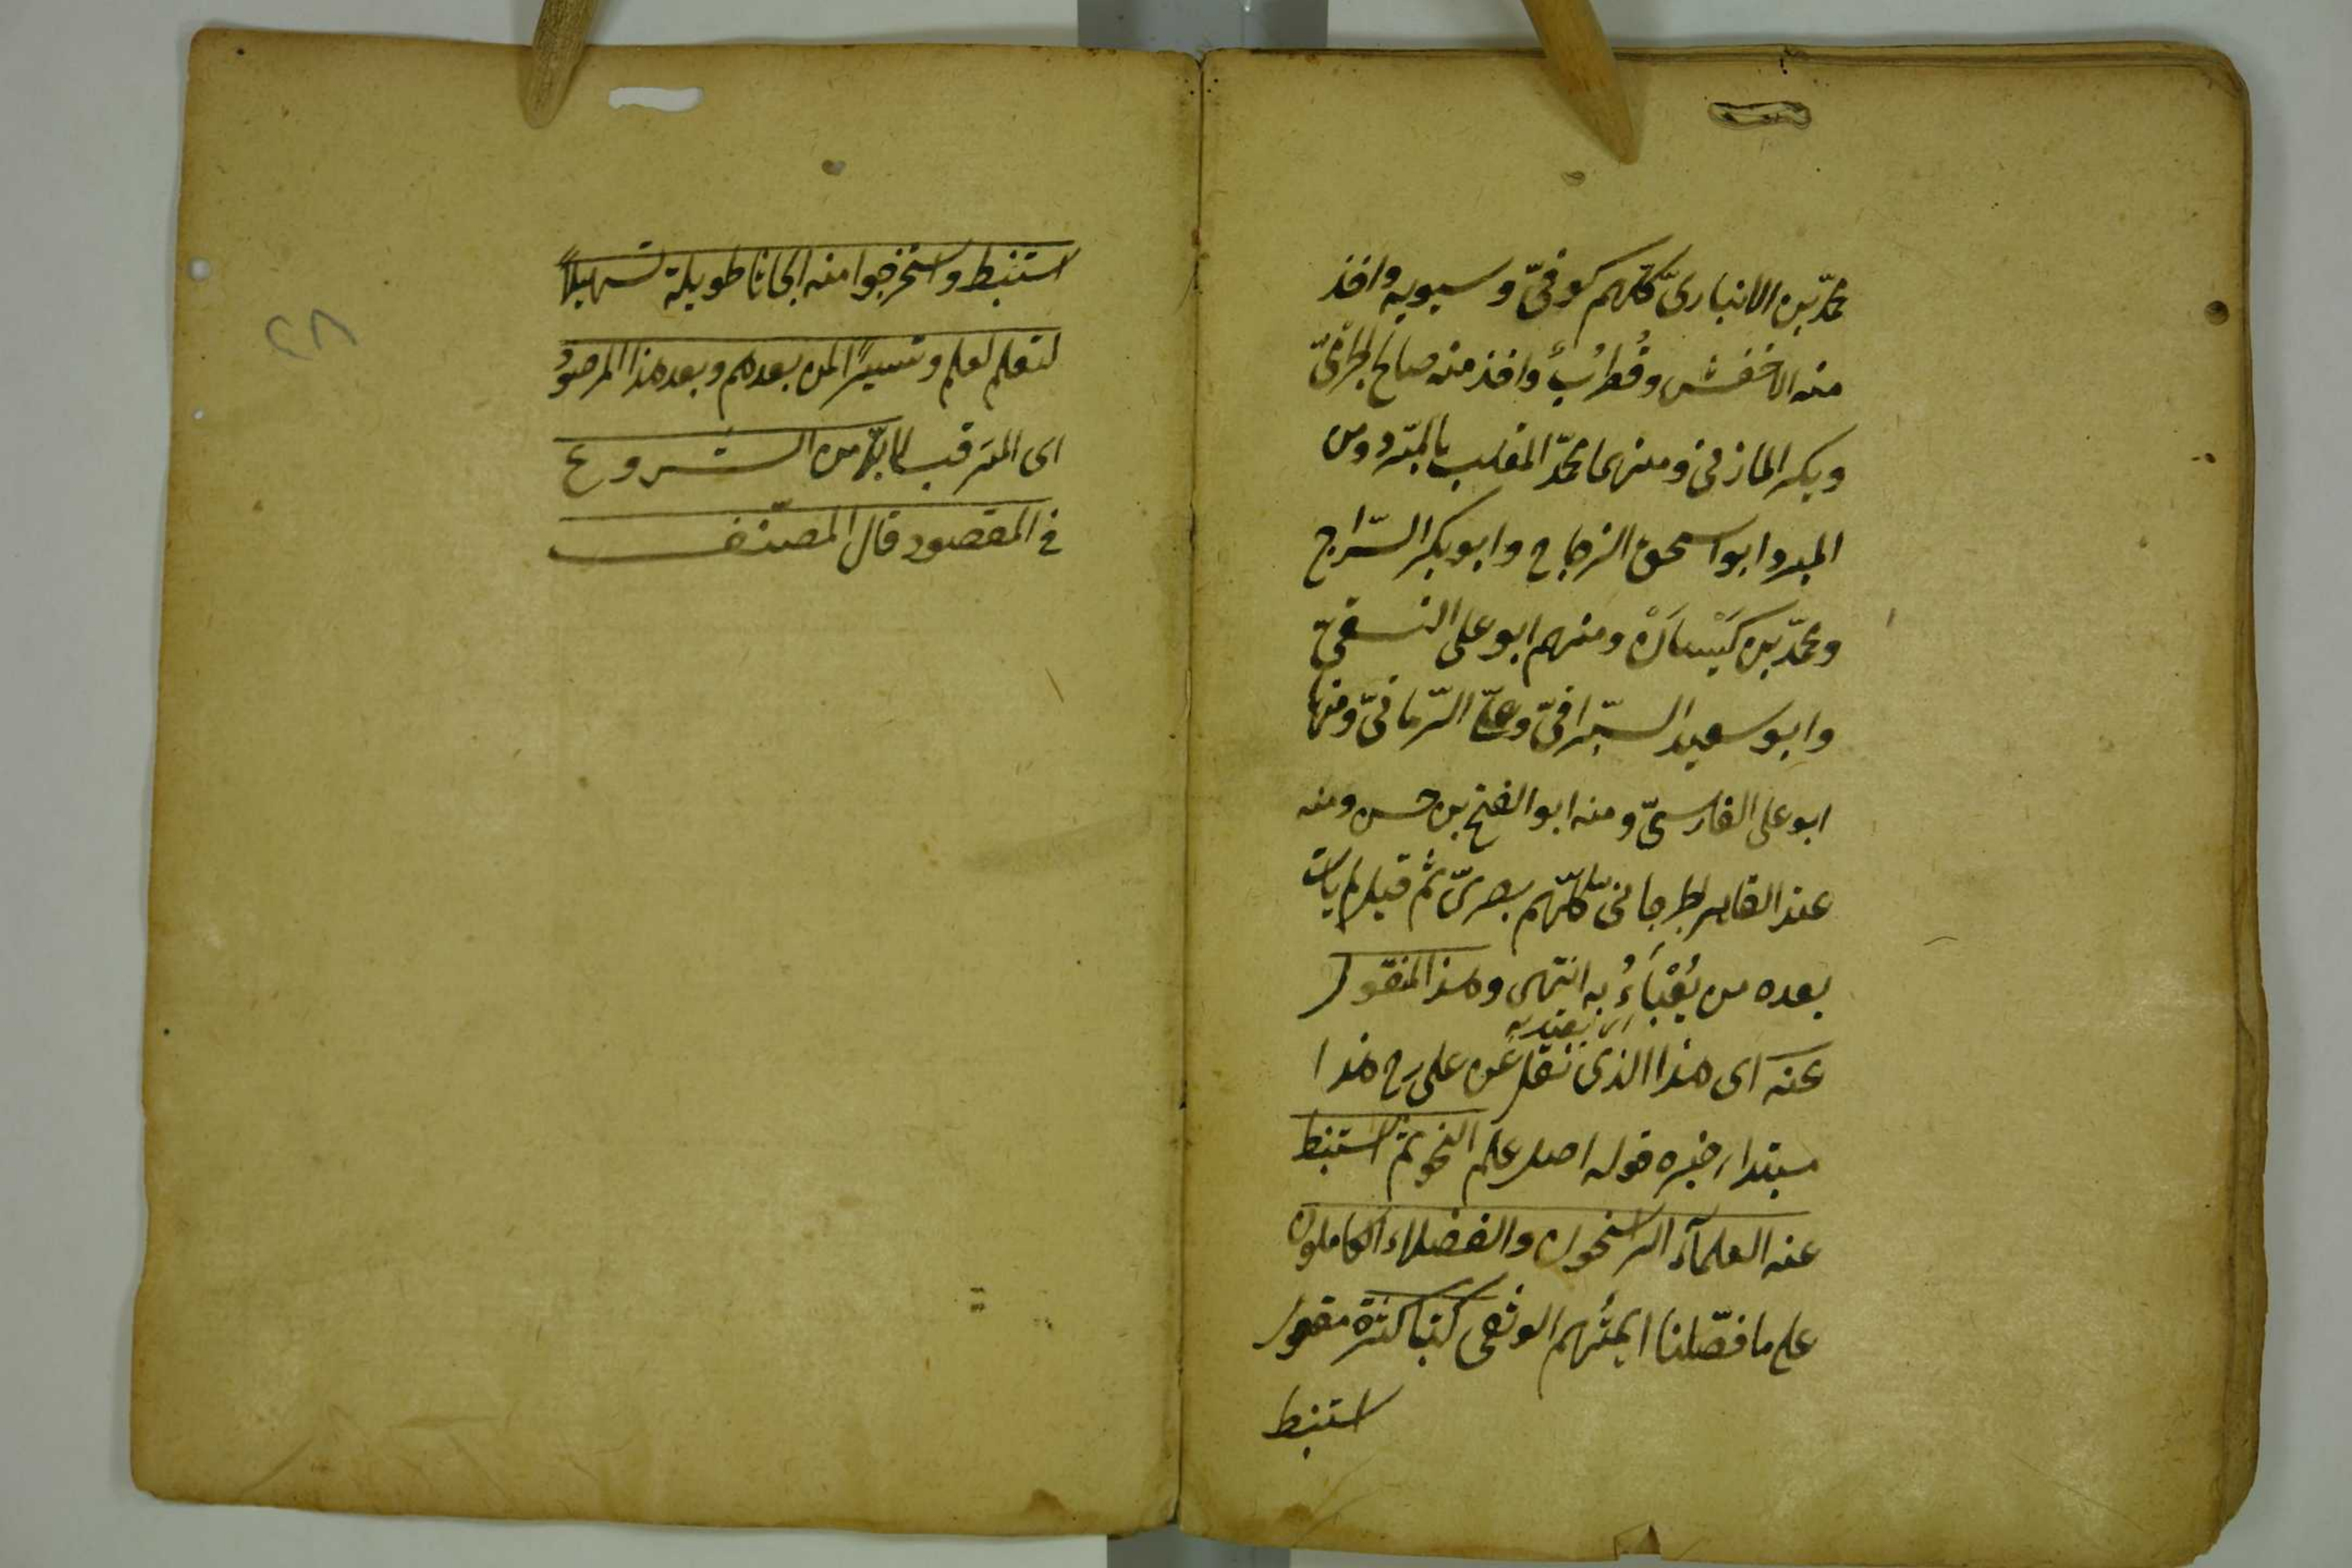 محمّد بن الانباریّ کلّهم کوفیّ و سیبویه واخذ
منه الاخفش و قُطرُبٌ واخذ منه صالح الجرمیّ
وبکر المازنی ومنهما محمّد الملقب بالمبرّد ومن
المبرد ابو اسحق الزجاج وابو بکر السّراج
ومحمّد بن کَیْسَانْ ومنهم ابو علی النسفیّ
وابو سعید السیرافیّ وعلیّ الرّمانیّ ومنها
ابو علی الفارسیّ ومنه ابو الفتح بن حسن ومنه
عند القاهر الجرجانی کلّهم بصریّ ثم قیل لم یات
بعده من یُعْبَاءُ به انتهی وهذا المنقول
ای یعتد به
عنه ای هذا الذی نقل عن علی رح هذا
مبتداء خبره قوله اصل علم النحو ثم استنبط
عنه العلمآء الراسخون والفضلاء الکاملون
علی ما فصّلنا ایمئهم الوثقی کتبا کثرة مقول
استنبط
استنبط واستخرجوا منه ابحاثا طویلة تسهیلاً
لتعلم لعلم وتیسیرًا لمن بعدهم وبعد هذا المرصود
ای المترقب لا بدّ من الشروع
فی المقصود قال المصنّف
۲۸